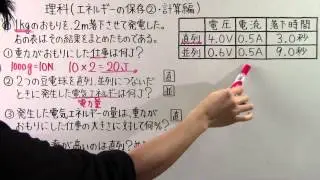 理科(エネルギーの保存②・計算編)
1kgのおもりを、2m落下させて発電した。
右の表はその結果をまとめたものである。
①重力がおもりにした仕事は何J？
1000g=10N 10×2=20J
②2つの豆電球を直列、並列につないだ
ときに発生した電気エネルギーは何J？
直
並
電力量
③発生した電気エネルギーの量は、重力が
おもりにした仕事の大きさに対して何%？
直
高いのは直列？並
電圧 電流 落下時間
直列 4.0V 0.5A 3.0秒
並列 0.6V 0.5A 9.0秒